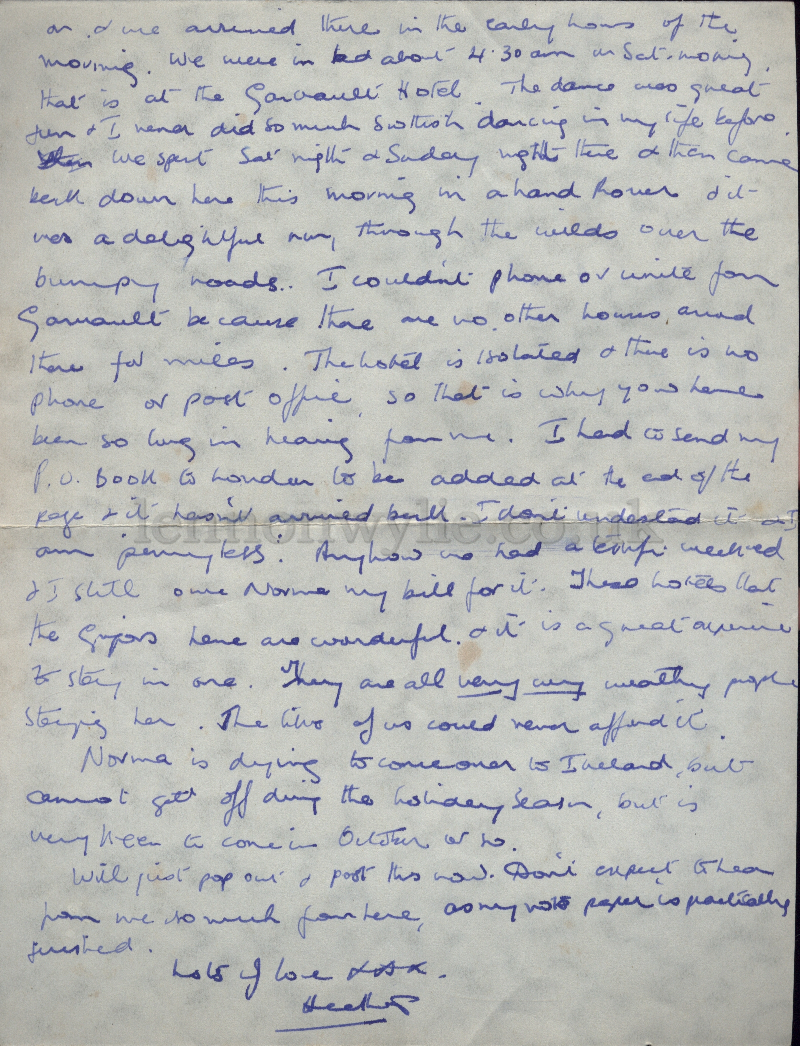 on & we arrived there in the early hours of the
morning. We were in bed about 4.30 am on Sat. morning,
that is at the Garvault Hotel. The dance was great
fun & I never did so much Scottish dancing in my life before.
We spent Sat night & Sunday night there & then came
back down here this morning in a Land Rover & it
was a delightful run, through the wilds over the
bumpy roads.. I couldn't phone or write from
Garvault because there are no other houses around
there for miles. The hotel is isolated & there is no
phone or post office, so that is why you have
been so long in hearing from me. I had to send my
P.O. Book to London to be added at the end of the
page & it hasn't arrived back I don't understand it & I
am pennyless. Anyhow we had a weekend
& I still owe Norma my bill for it. These hotels that
the have are wonderful. & it is a great experience
to stay in one. They are all very very wealthy people
staying here. The likes of us could never afford it.
Norma is dying to come over to Ireland, but
cannot get off during the holiday season, but is
very keen to come in October or so.
Will just pop out & post this now. Don't expect to hear
from me so much from here, as my note paper is practically
finished.
Lots of love xxx.
Heather
lennonwylie.co.uk